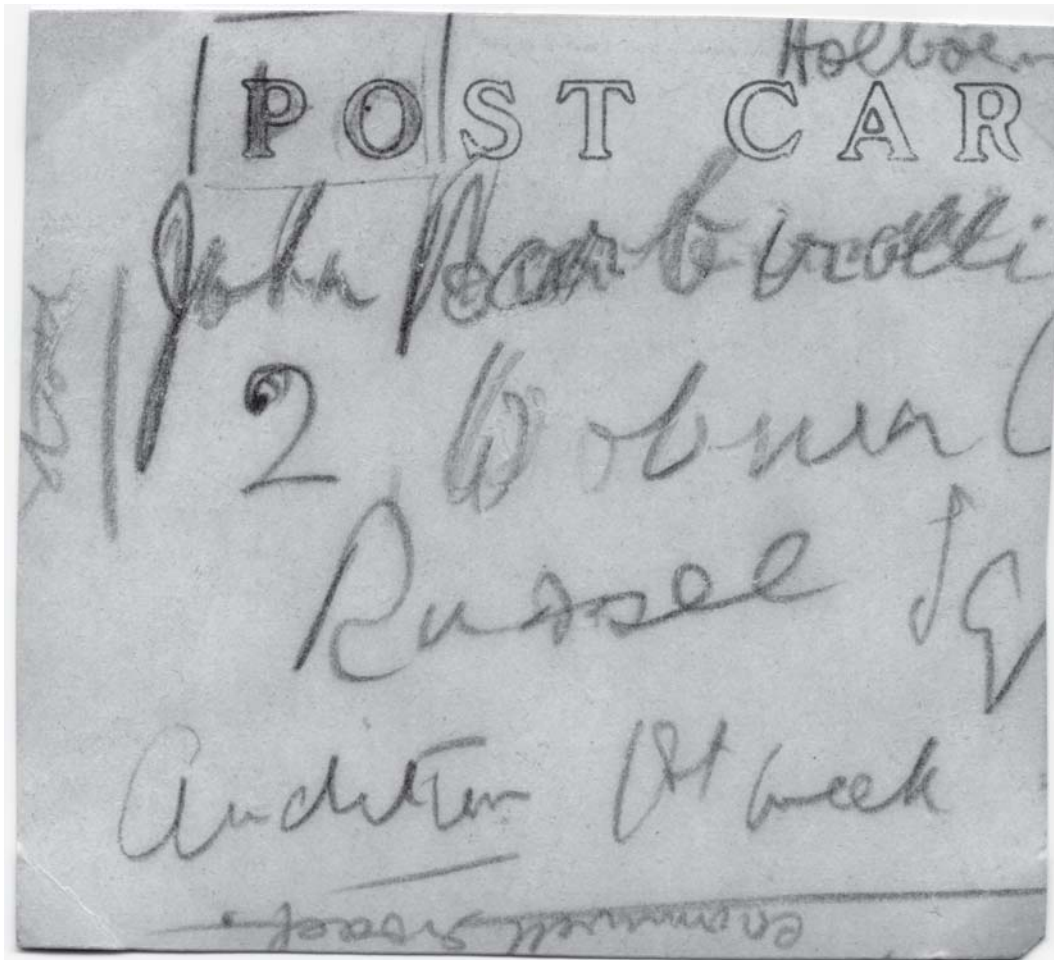 Holborn
POST CAR
John Barbirolli
2 Woburn
Russel Sq
Audition 1st week